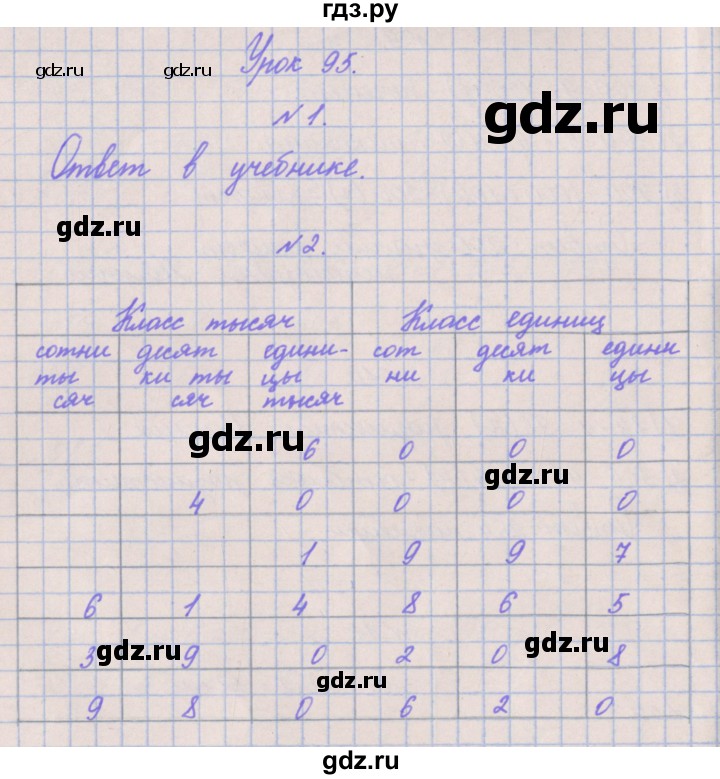 гдз.ру
Урок 95.
gdz.ru gdz.ru
gdz.ru
№1.
Ответ в учебнике.
gdz.ru
№2.
Класс тысяч Класс единиц
сотни десят едини- сот десят едини
ты ки ты цы ни ки цы
сяч сяч тысяч
gdz.ru
6 0 0 0
gdz.ru
4 0 0 0 0
1 9 9 7
6 1 4 8 6 5
3 9 0 2 0 8
gdz.ru gdz.ru
gdz.ru
9 8 0 6 2 0
gdz.ru